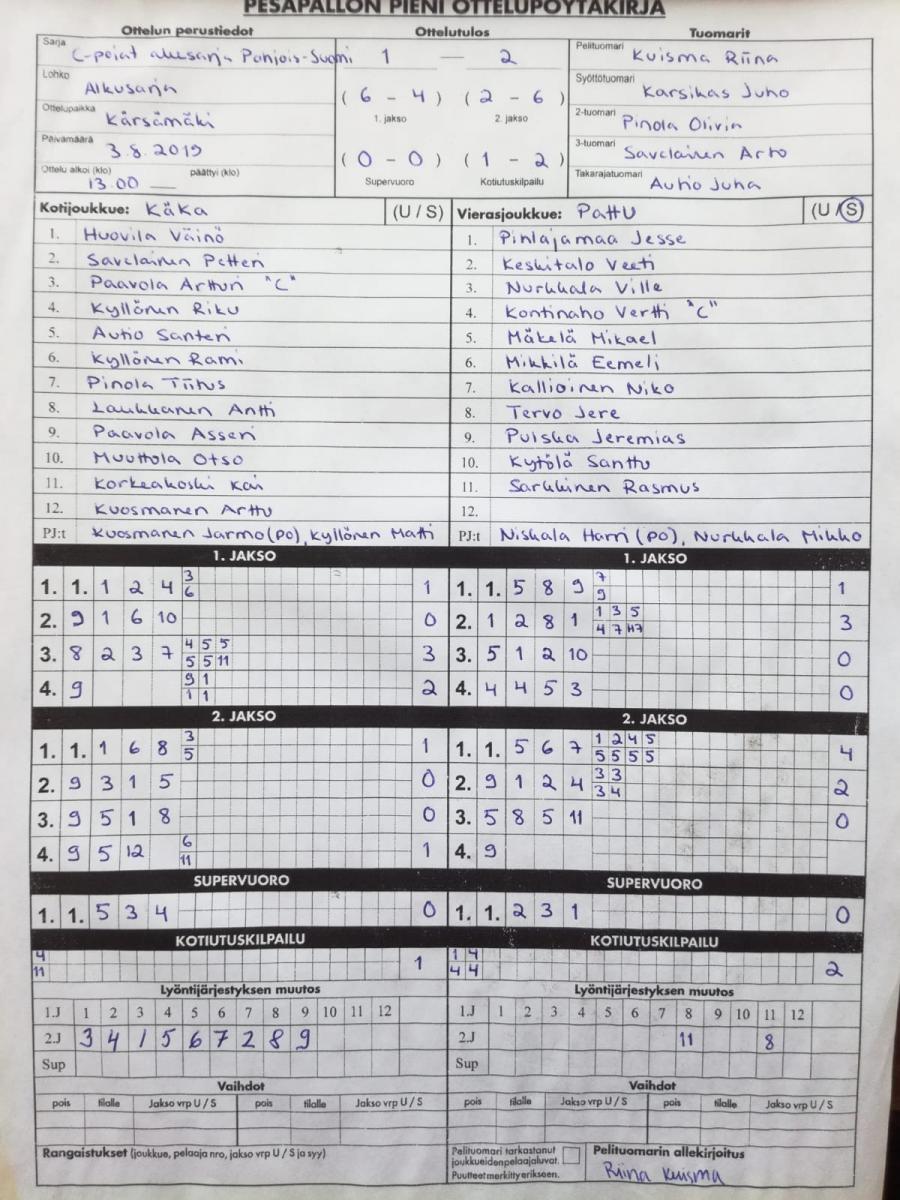 PESÄPALLON PIENI OTTELUPÖYTÄKIRJA
Ottelun perustiedot Ottelutulos Tuomarit
Sarja C-pojat alkusarja Pohjois-Suomi 1 — 2 Pelituomari Kuisma Riina
Lohko Alkusarja (6 - 4) (2 - 6) Syöttötuomari Karsikas Juho
1. jakso 2. jakso
Ottelupaikka Kärsämäki 2-tuomari Pinola Olivia
Päivämäärä 3.8.2019 (0 - 0) (1 - 2) 3-tuomari Savelainen Arto
Ottelu alkoi (klo) 13.00 päättyi (klo) — Supervuoro Kotiutuskilpailu Takarajatuomari Autio Juha
Kotijoukkue: KäKa (U / S) Vierasjoukkue: Pattu (U / S)
1. Huovila Väinö 1. Pinlajamaa Jesse
2. Savelainen Petteri 2. Keskitalo Veeti
3. Paavola Artturi "C" 3. Nurkkala Ville
4. Kyllönen Riku 4. Kontinaho Vertti "C"
5. Autio Santeri 5. Mäkelä Mikael
6. Kyllönen Rami 6. Mikkilä Eemeli
7. Pinola Tiitus 7. Kallioinen Niko
8. Laukkanen Antti 8. Tervo Jere
9. Paavola Asseri 9. Puiska Jeremias
10. Muuttola Otso 10. Kytölä Santtu
11. Korkeakoski Kai 11. Sarkkinen Rasmus
12. Kuosmanen Arttu 12.
PJ:t Kuosmanen Jarmo (PO), Kyllönen Matti PJ:t Niskala Harri (PO), Nurkkala Mikko
1. JAKSO 1. JAKSO
1. 1. 1 2 4 3 1 1. 1. 5 8 9 7 1
6 9
2. 9 1 6 10 0 2. 1 2 8 1 1 3 5 3
4 7 7
3. 8 2 3 7 4 5 5 3 3. 5 1 2 10 0
5 5 11
4. 9 9 1 2 4. 4 4 5 3 0
1 1
2. JAKSO 2. JAKSO
1. 1. 1 6 8 3 1 1. 1. 5 6 7 1 2 4 5 4
5 5 5 5 5
2. 9 3 1 5 0 2. 9 1 2 4 3 3 2
3 4
3. 9 5 1 8 0 3. 5 8 5 11 0
4. 9 5 12 6 1 4. 9
11
SUPERVUORO SUPERVUORO
1. 1. 5 3 4 0 1. 1. 2 3 1 0
KOTIUTUSKILPAILU KOTIUTUSKILPAILU
4 1 1 4 2
11 4 4
Lyöntijärjestyksen muutos Lyöntijärjestyksen muutos
1.J 1 2 3 4 5 6 7 8 9 10 11 12 1.J 1 2 3 4 5 6 7 8 9 10 11 12
2.J 3 4 1 5 6 7 2 8 9 2.J 11 8
Sup Sup
Vaihdot Vaihdot
pois tilalle Jakso vrp U / S pois tilalle Jakso vrp U / S pois tilalle Jakso vrp U / S pois tilalle Jakso vrp U / S
Rangaistukset (joukkue, pelaaja nro, jakso vrp U / S ja syy) Pelituomari tarkastanut Pelituomarin allekirjoitus
joukkueiden pelaajaluvat.
Puutteet merkitty erikseen. Riina Kuisma